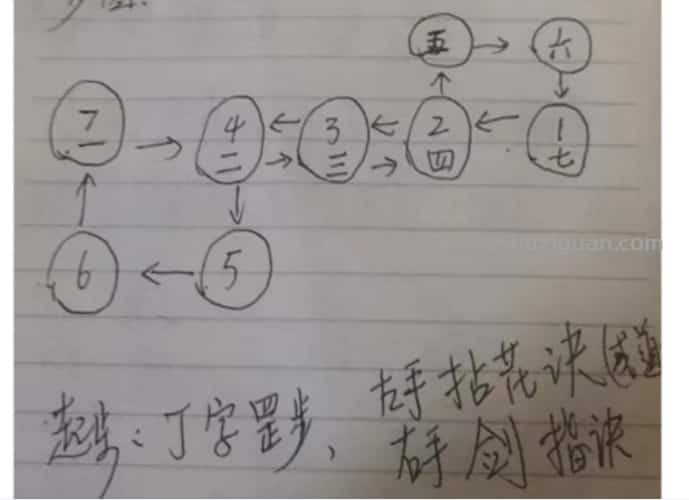 五 六
7 4 3 2 1
一 二 三 四 七
6 5
起步：丁字罡步、左手拈花诀(
右手剑指诀